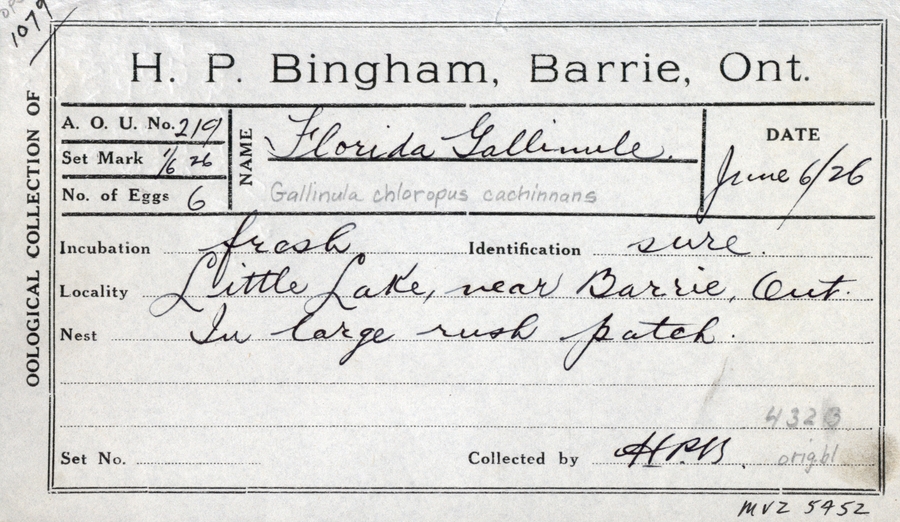 1079
OOLOGICAL COLLECTION OF
H. P. Bingham, Barrie, Ont.
A. O. U. No. 219
Set Mark 1/6 26
No. of Eggs 6
NAME
Florida Gallinule.
Gallinula chloropus cachinnans
DATE
June 6/26
Incubation fresh Identification sure.
Locality Little Lake, near Barrie, Ont.
Nest In large rush patch.
Set No. Collected by HPB.
origbl
MVZ 5952